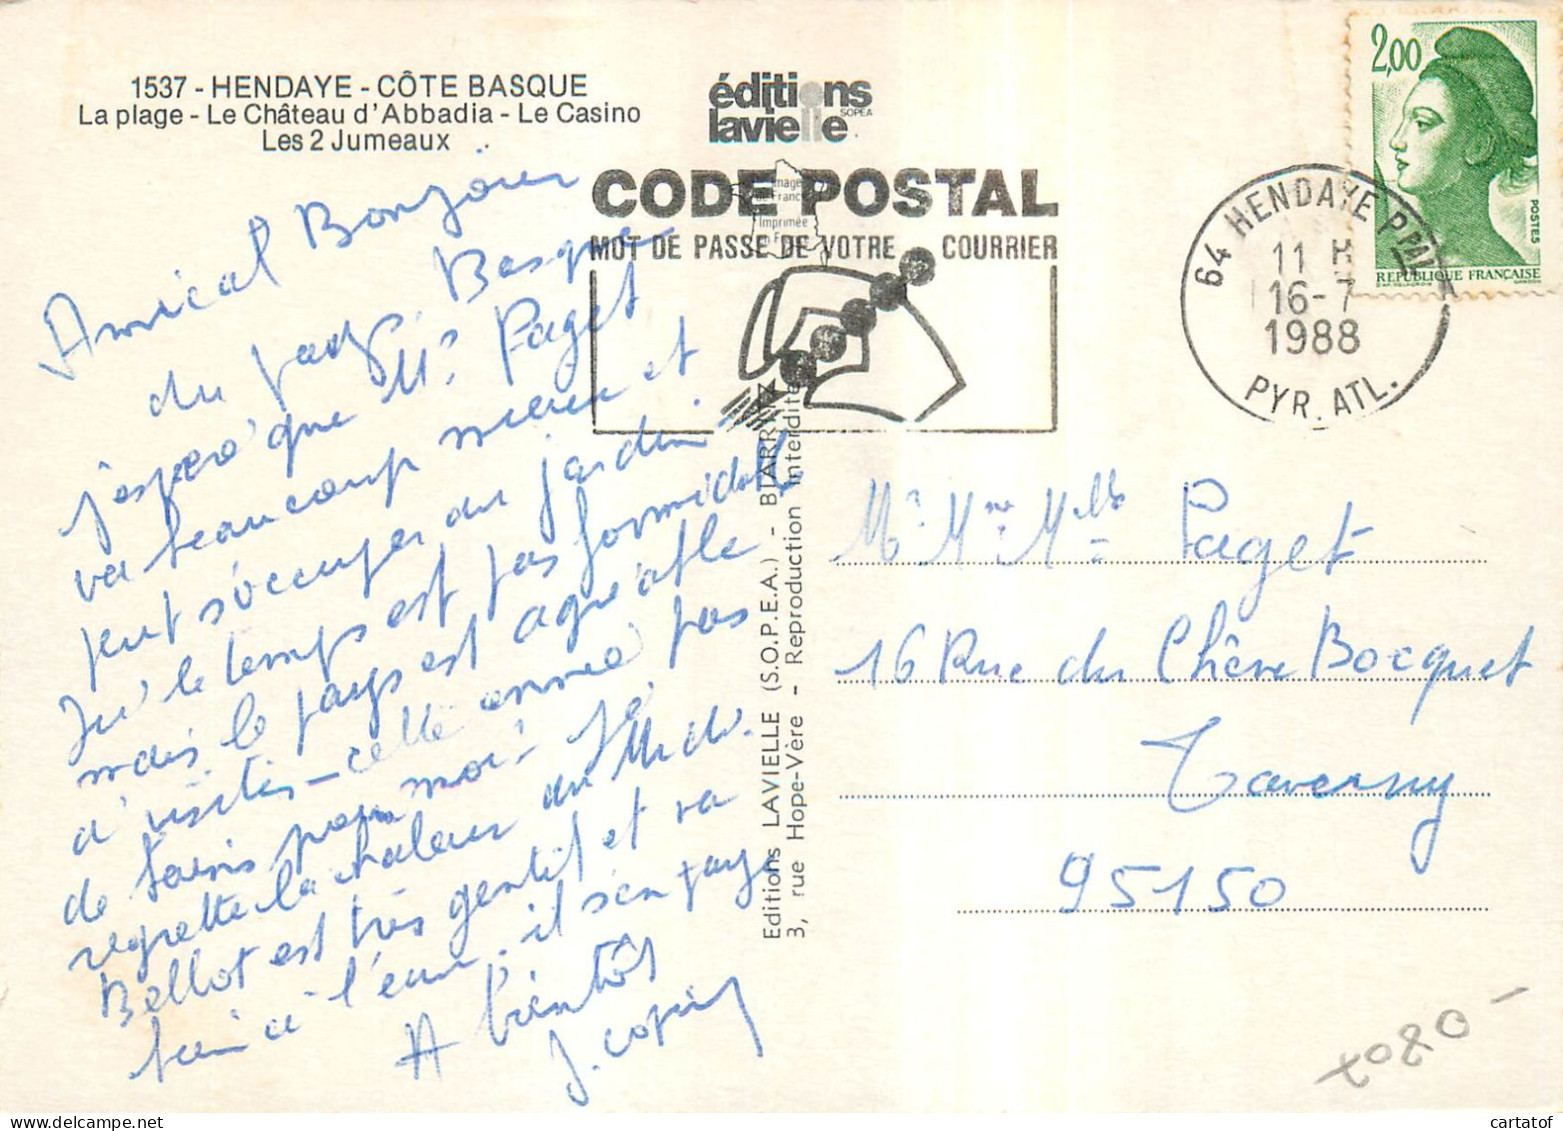 1537 - HENDAYE - CÔTE BASQUE
La plage - Le Château d'Abbadia - Le Casino
Les 2 Jumeaux
éditions
lavielle
SOPEA
Image
de France
Imprimée
en France
CODE POSTAL
MOT DE PASSE DE VOTRE COURRIER
2,00
POSTES
REPUBLIQUE FRANÇAISE
64 HENDAYE PPAL
11 H
16-7
1988
PYR. ATL.
Amical Bonjour
du pays Basque
j'espère que Mr Paget
va beaucoup mieux et
peut s'occuper du jardin
Ici le temps est pas formidable
mais le pays est agréable
à visiter - cette année pas
de bains pour moi - Je
regrette la chaleur du Midi.
Bellot est très gentil et va
bain à l'eau, il s'en paye
A bientôt
J. Copin
Editions LAVIELLE (S.O.P.E.A.) - BIARRITZ
3, rue Hope-Vère - Reproduction interdite
Mr Mme Mlle Paget
16 Rue du Chêne Bocquet
Taverny
95150